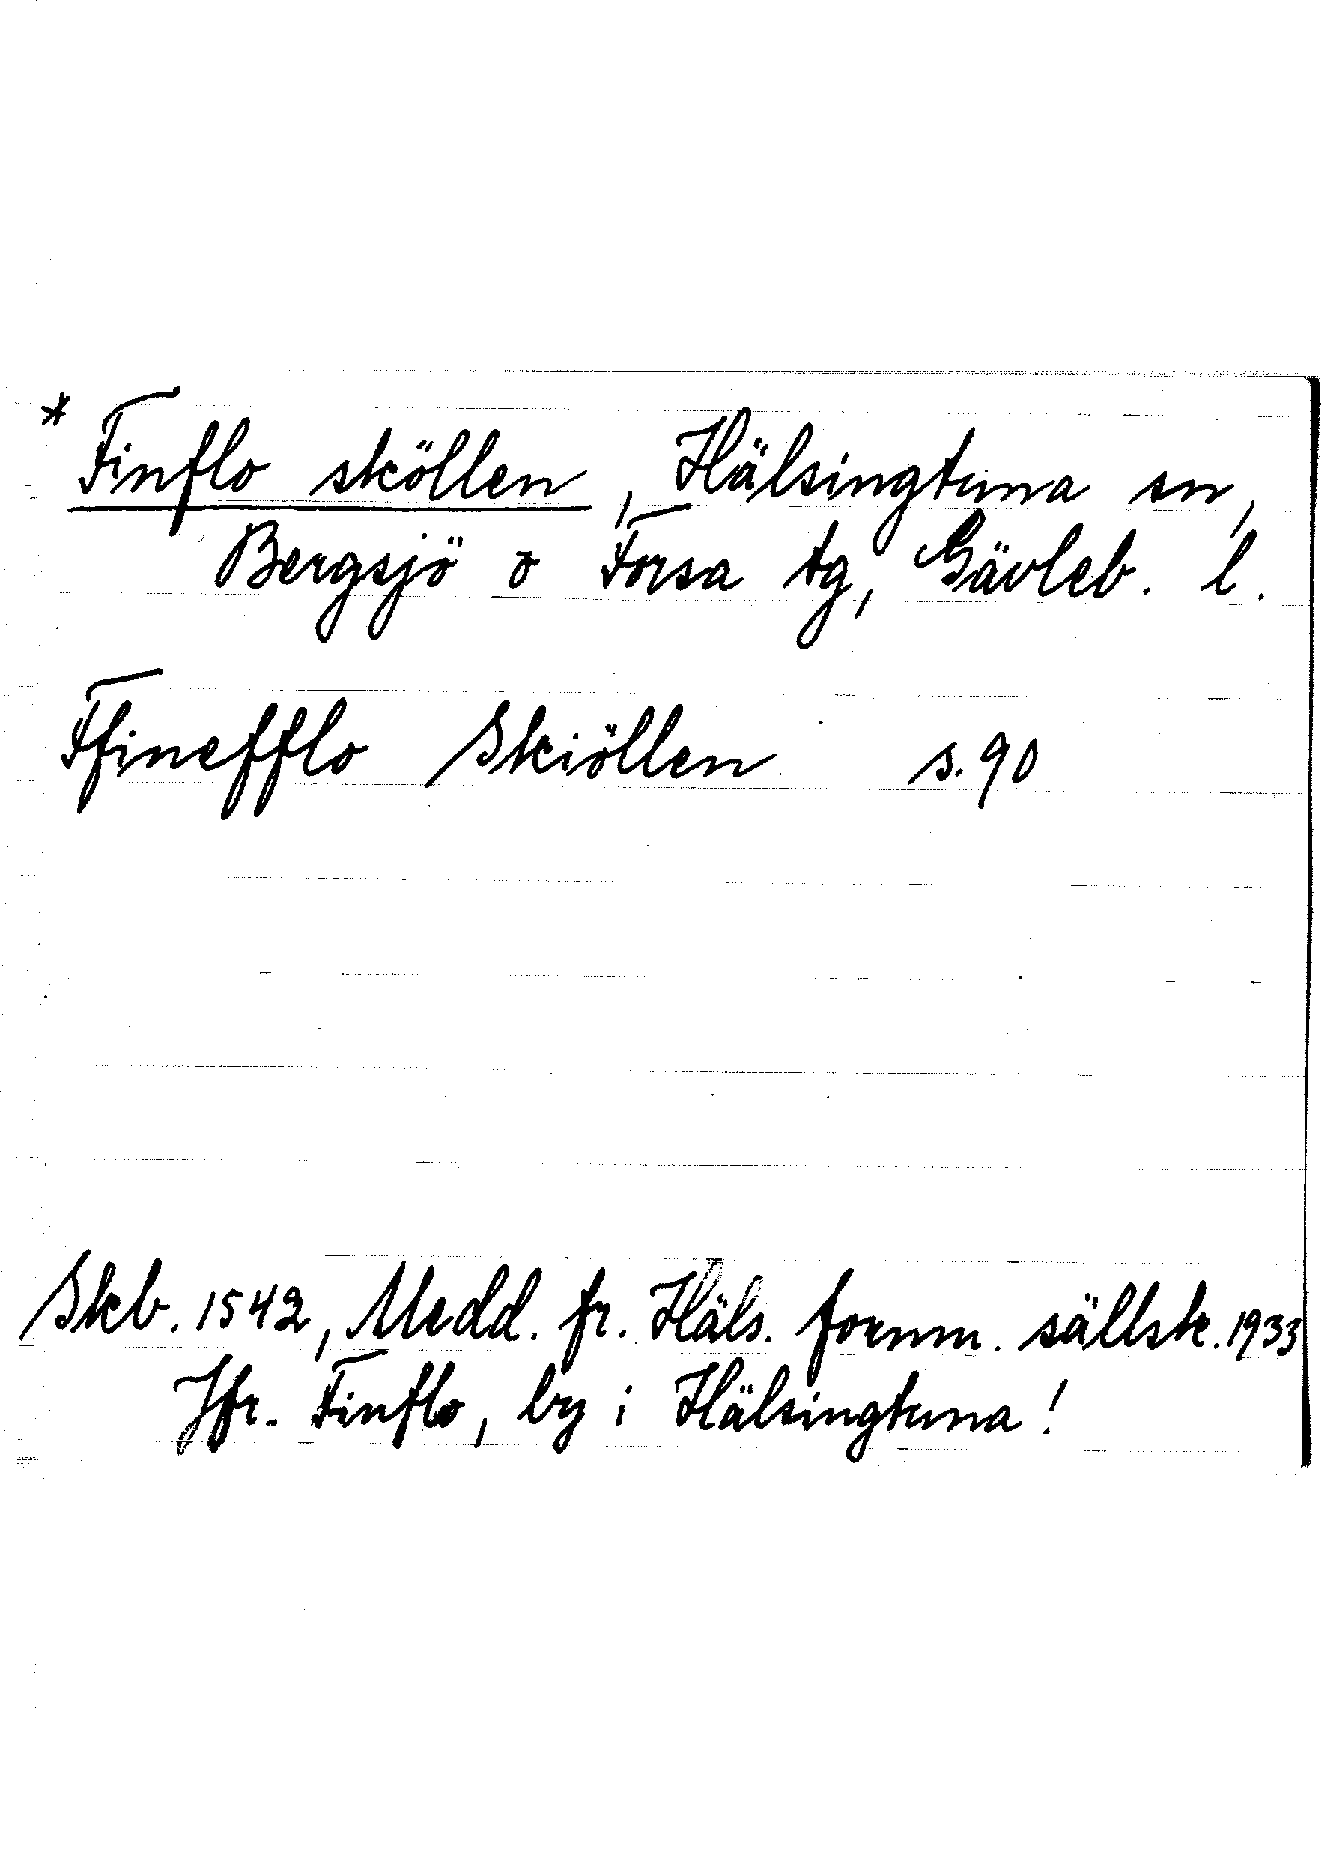 * Finflo sköllen, Hälsingtuna sn,
Bergsjö o Forsa tg, Gävleb. l.
Ffinefflo Skiöllen s. 90
Skb. 1542, Medd. fr. Häls. fornm. sällsk. 1933
Jfr. Finflo, by i Hälsingtuna!